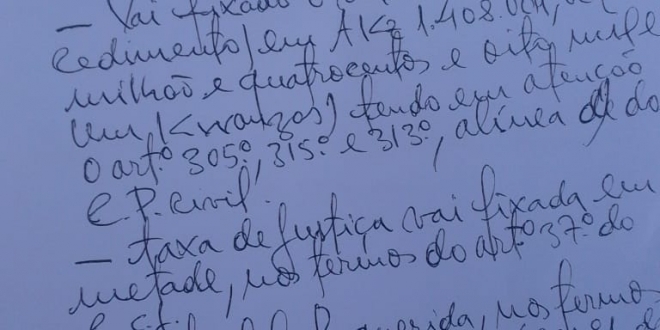 – Vai fixado o
cedimento) em AKz 1.408.001, 
milhão e quatrocentos e oito mil e
um Kwanzas) tendo em atenção
o artº. 305º., 315º. e 313º., alínea d) do
C.P. Civil.
– taxa de justiça vai fixada em
metade, nos termos do artº 37.º do
nos termos